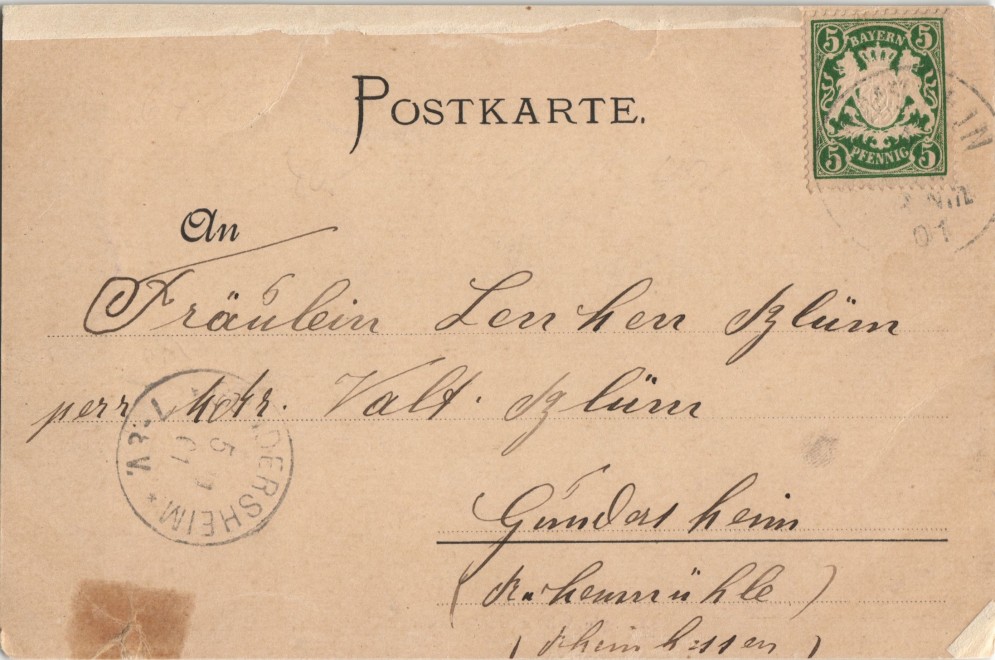 POSTKARTE.
5 BAYERN 5
5 PFENNIG 5
LIN
Nm
01
An
Fräulein Lenchen Blüm
perr Adr. Valt. Blüm
DERSHEIM *
5
01
7-8V.
Gundersheim
(
mühle)
(Rheinhessen)